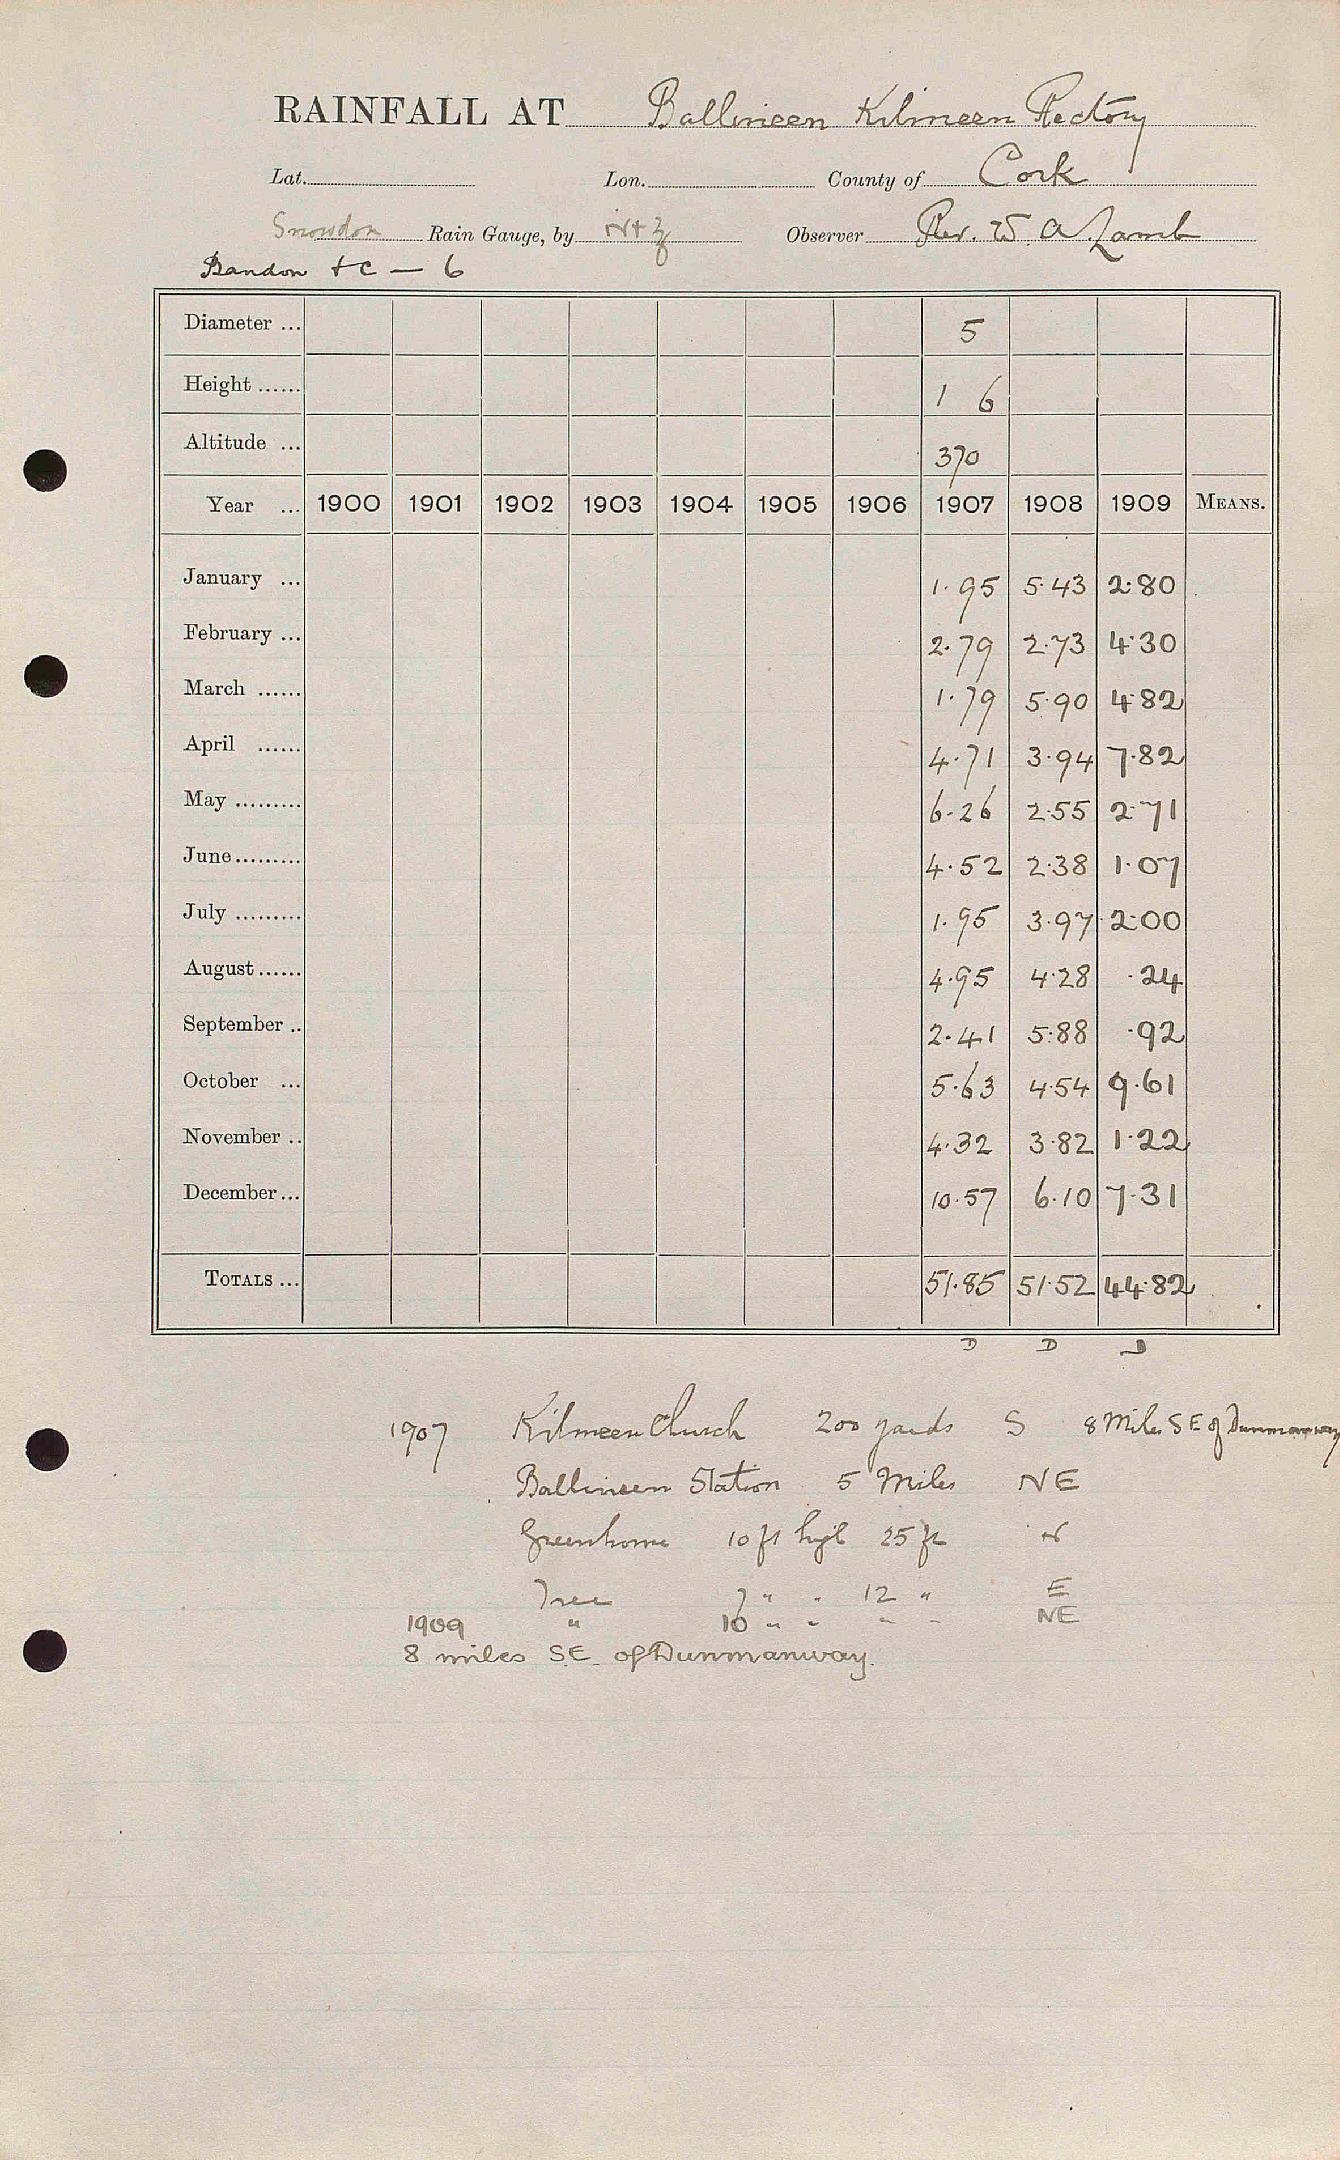 RAINFALL AT Ballineen Kilmeen Rectory
Lat. Lon. County of Cork
Snowdon Rain Gauge, by N & Z Observer Rev. W. A. Lamb
Bandon &c — 6
Diameter ... 5
Height ...... 1 6
Altitude ... 370
Year ... 1900 1901 1902 1903 1904 1905 1906 1907 1908 1909 MEANS.
January ... 1.95 5.43 2.80
February ... 2.79 2.73 4.30
March ...... 1.79 5.90 4.82
April ...... 4.71 3.94 7.82
May ......... 6.26 2.55 2.71
June......... 4.52 2.38 1.07
July ......... 1.95 3.97 2.00
August...... 4.95 4.28 .24
September .. 2.41 5.88 .92
October ... 5.63 4.54 9.61
November .. 4.32 3.82 1.22
December... 10.57 6.10 7.31
TOTALS ... 51.85 51.52 44.82
D D D
1907 Kilmeen Church 200 yards S 8 Miles SE of Dunmanway
Ballineen Station 5 Miles NE
Greenhouse 10 ft high 25 ft N
Tree 7 " " 12 " E
1909 " 10 " " " " NE
8 miles SE of Dunmanway.